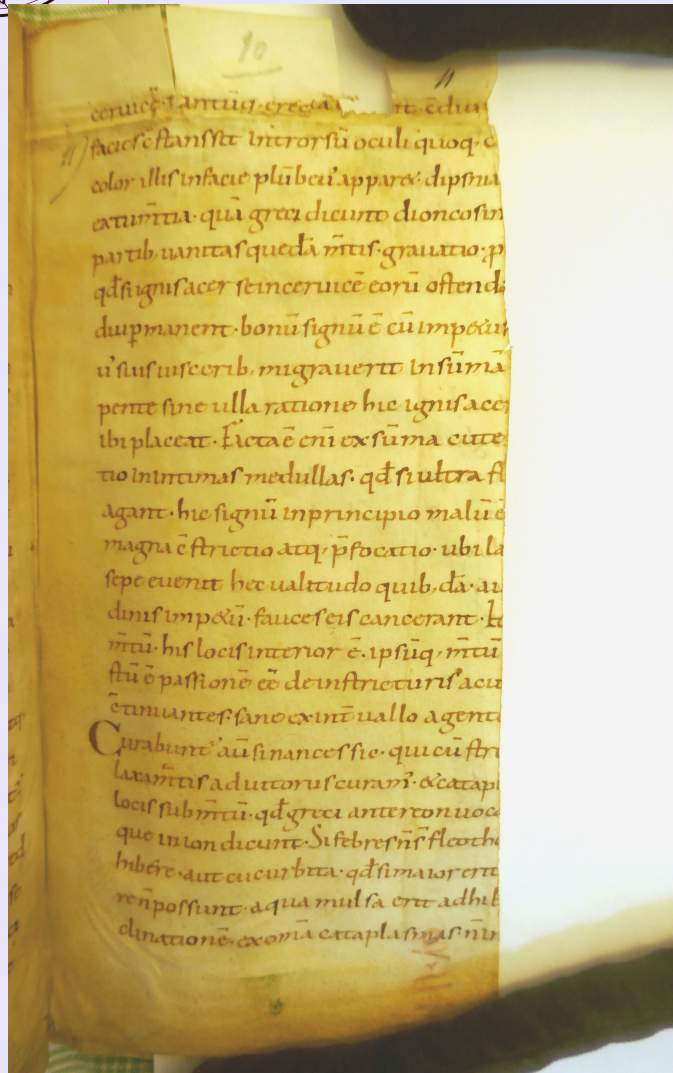 10
11
ceruicē
11 facies ē stans sit introrsū oculi quoq· c
color illis in facie plūbeū apparet· dipsnia
extum̄tia· quā greci dicunt dioncosin
partib; uanitas quedā m̄tis· grauatio· p
qđ si ignis acer se in ceruicē eorū ostend
diu p̱manent· bonū signū ē cū impetu
u' siui uiscerib; migrauerit in sūmā
pente sine ulla ratione hic ignis acer
ibi placeat· Facta ē eni ex sūma cute
tio in intimas medullas· qđ si ultra fl
agant· hic signū in principio malū ē
magna ē strictio atq; p̄focatio· ubi la
sepe euenit hec ualitudo quib; dā· au
dinis impetū· fauces eis cancerant·
m̄tū· his locis interior ē· ipsūq; m̄tū
stū ē passionē eē de in stricturis acu
c̄tinuantes· sane ex int̄uallo agent
Curabunt' aū sinances sic· qui cū stri
laxam̄tis adiutorus curam'· & catap
locis sub m̄tū· qđ greci antereon uoca
que in ion dicunt· Si febres ñ s' fleotho
hibere· aut cucurbita· qđ si maior erit
re ñ possunt· aqua mulsa erit adhib
clinationē· ex om̄a cataplasmas ñ in